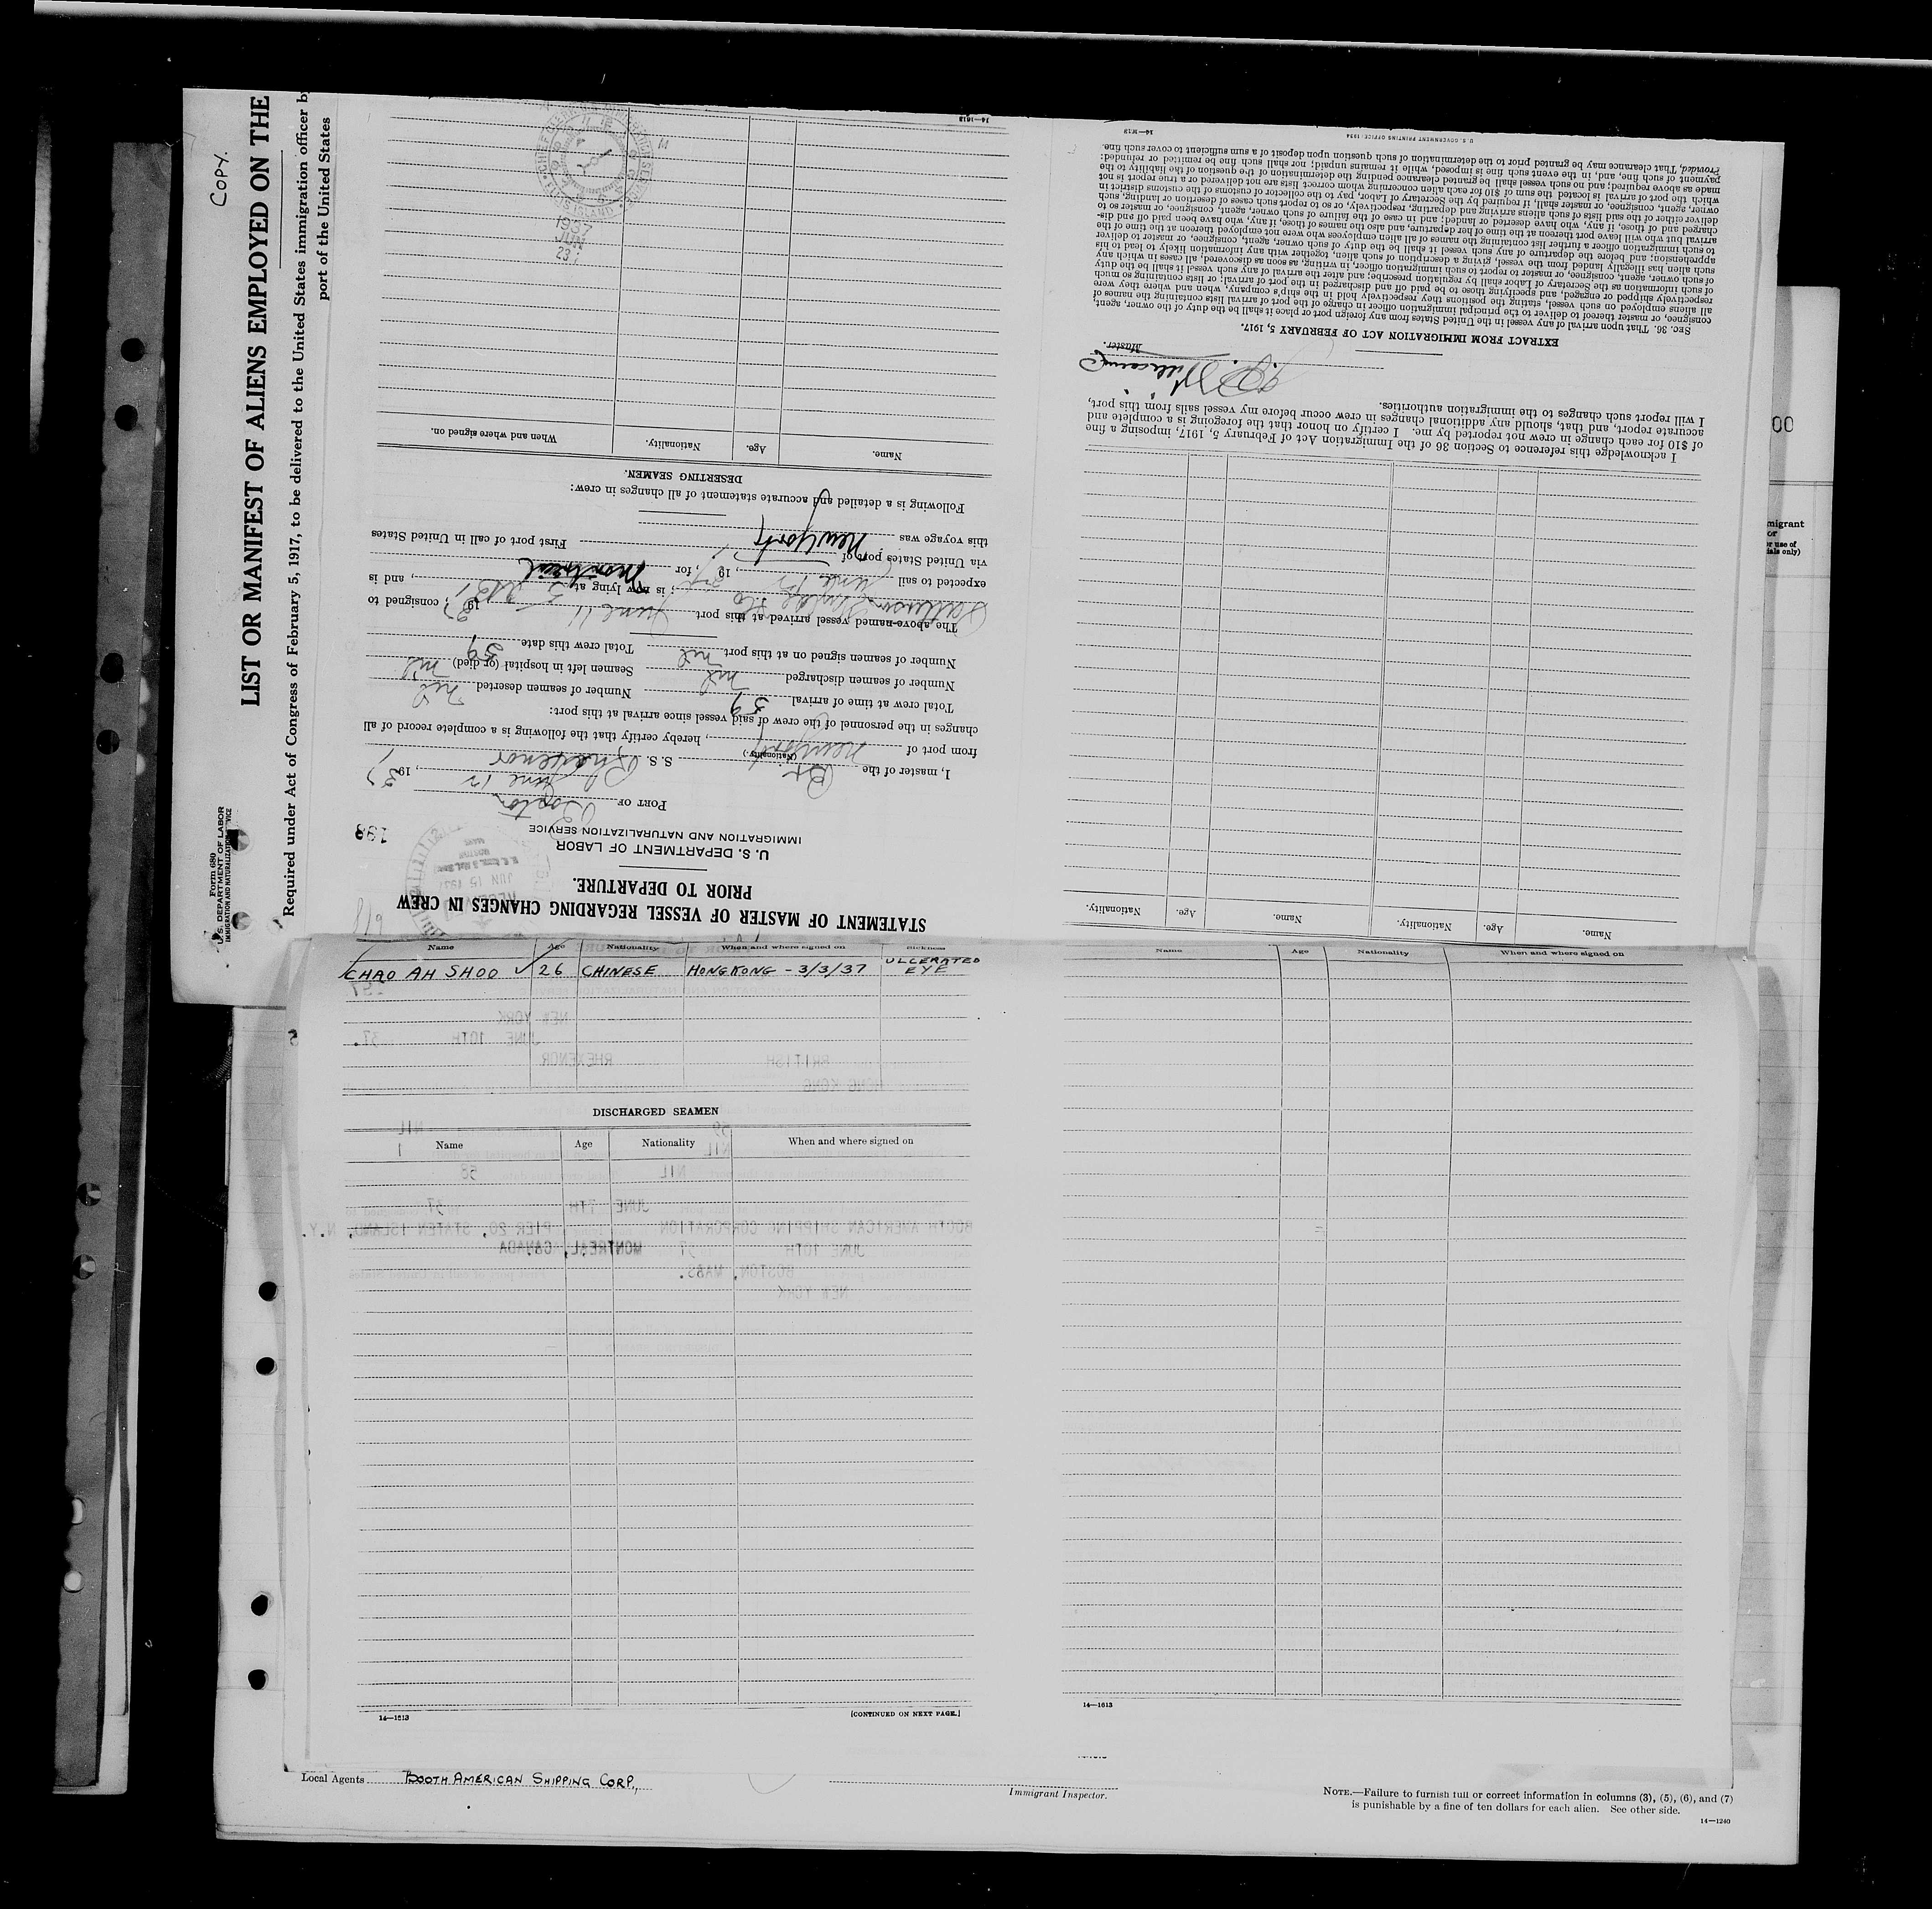 COPY.
LIST OR MANIFEST OF ALIENS EMPLOYED ON THE
Required under Act of Congress of February 5, 1917, to be delivered to the United States immigration officer by
port of the United States
Form 680
U. S. DEPARTMENT OF LABOR
IMMIGRATION AND NATURALIZATION SERVICE
STATEMENT OF MASTER OF VESSEL REGARDING CHANGES IN CREW
PRIOR TO DEPARTURE.
U. S. DEPARTMENT OF LABOR
IMMIGRATION AND NATURALIZATION SERVICE
198
JUN 15 1937
PORT OF Boston
June 12, 1937
I, master of the Br. S. S. Rhexenor
(Nationality.)
from port of New York, hereby certify that the following is a complete record of all
changes in the personnel of the crew of said vessel since arrival at this port:
Total crew at time of arrival 59 Number of seamen deserted nil
Number of seamen discharged nil Seamen left in hospital (or died) nil
Number of seamen signed on at this port nil Total crew this date 59
The above-named vessel arrived at this port June 11, 1937, consigned to
Patterson Wylde & Co; is now lying at, and is
expected to sail June 12, 1937, for Montreal
via United States port of
this voyage was New York First port of call in United States
Following is a detailed and accurate statement of all changes in crew:
DESERTING SEAMEN.
Name. Age. Nationality. When and where signed on.
ELLIS ISLAND
1937
JUN
23
14—1613
Name. Age. Nationality. Name. Age. Nationality.
I acknowledge this reference to Section 36 of the Immigration Act of February 5, 1917, imposing a fine
of $10 for each change in crew not reported by me. I certify on honor that the foregoing is a complete and
accurate report, and that, should any additional changes in crew occur before my vessel sails from this port,
I will report such changes to the immigration authorities.
Master.
EXTRACT FROM IMMIGRATION ACT OF FEBRUARY 5, 1917.
Sec. 36. That upon arrival of any vessel in the United States from any foreign port or place it shall be the duty of the owner, agent,
consignee, or master thereof to deliver to the principal immigration officer in charge of the port of arrival lists containing the names of
all aliens employed on such vessel, stating the positions they respectively hold in the ship's company, when and where they were
respectively shipped or engaged, and specifying those to be paid off and discharged in the port of arrival; or lists containing so much
of such information as the Secretary of Labor shall by regulation prescribe; and after the arrival of any such vessel it shall be the duty
of such owner, agent, consignee, or master to report to such immigration officer, in writing, as soon as discovered, all cases in which any
such alien has illegally landed from the vessel, giving a description of such alien, together with any information likely to lead to his
apprehension; and before the departure of any such vessel it shall be the duty of such owner, agent, consignee, or master to deliver
to such immigration officer a further list containing the names of all alien employees who were not employed thereon at the time of the
arrival but who will leave port thereon at the time of her departure, and also the names of those, if any, who have been paid off and dis-
charged and of those, if any, who have deserted or landed; and in case of the failure of such owner, agent, consignee, or master so to
deliver either of the said lists of such aliens arriving and departing, respectively, or so to report such cases of desertion or landing, such
owner, agent, consignee, or master shall, if required by the Secretary of Labor, pay to the collector of customs of the customs district in
which the port of arrival is located the sum of $10 for each alien concerning whom correct lists are not delivered or a true report is not
made as above required; and no such vessel shall be granted clearance pending the determination of the question of the liability to the
payment of such fine, and, in the event such fine is imposed, while it remains unpaid; nor shall such fine be remitted or refunded:
Provided, That clearance may be granted prior to the determination of such question upon deposit of a sum sufficient to cover such fine.
U. S. GOVERNMENT PRINTING OFFICE: 1934
Name Age Nationality When and where signed on Sickness
CHAO AH SHOO 26 CHINESE HONGKONG - 3/3/37 ULCERATED EYE
Name Age Nationality When and where signed on
197
NEW YORK
JUNE 10TH 37.
BRITISH RHEXENOR
HONG KONG
DISCHARGED SEAMEN
Name Age Nationality When and where signed on
59 NIL
NIL 1
NIL 58
JUNE 7TH 37
BOOTH AMERICAN SHIPPING CORPORATION PIER 20, STATEN ISLAND, N.Y.
JUNE 10TH 37 MONTREAL, CANADA
BOSTON, MASS.
NEW YORK
14—1613
[CONTINUED ON NEXT PAGE.]
14—1613
Local Agents BOOTH AMERICAN SHIPPING CORP.,
Immigrant Inspector.
NOTE.—Failure to furnish full or correct information in columns (3), (5), (6), and (7)
is punishable by a fine of ten dollars for each alien. See other side.
14—1240